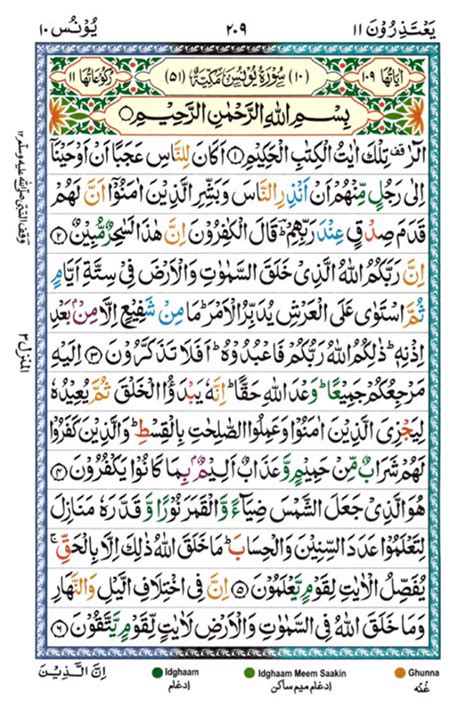 يَعْتَذِرُوْنَ ١١ ٢٠٩ يُوْنُس ١٠
اٰيَاتُهَا ١٠٩ (١٠) سُوْرَةُ يُوْنُسَ مَكِّيَّةٌ (٥١) رُكُوْعَاتُهَا ١١
بِسْمِ اللّٰهِ الرَّحْمٰنِ الرَّحِيْمِ
الٓرٰ تِلْكَ اٰيٰتُ الْكِتٰبِ الْحَكِيْمِ ١ اَكَانَ لِلنَّاسِ عَجَبًا اَنْ اَوْحَيْنَاۤ
اِلٰى رَجُلٍ مِّنْهُمْ اَنْ اَنْذِرِ النَّاسَ وَبَشِّرِ الَّذِيْنَ اٰمَنُوْۤا اَنَّ لَهُمْ
قَدَمَ صِدْقٍ عِنْدَ رَبِّهِمْ ؕ قَالَ الْكٰفِرُوْنَ اِنَّ هٰذَا لَسٰحِرٌ مُّبِيْنٌ ٢
اِنَّ رَبَّكُمُ اللّٰهُ الَّذِيْ خَلَقَ السَّمٰوٰتِ وَالْاَرْضَ فِيْ سِتَّةِ اَيَّامٍ
ثُمَّ اسْتَوٰى عَلَى الْعَرْشِ يُدَبِّرُ الْاَمْرَ ؕ مَا مِنْ شَفِيْعٍ اِلَّا مِنْۢ بَعْدِ
اِذْنِهٖ ؕ ذٰلِكُمُ اللّٰهُ رَبُّكُمْ فَاعْبُدُوْهُ ؕ اَفَلَا تَذَكَّرُوْنَ ٣ اِلَيْهِ
مَرْجِعُكُمْ جَمِيْعًا ؕ وَعْدَ اللّٰهِ حَقًّا ؕ اِنَّهٗ يَبْدَؤُا الْخَلْقَ ثُمَّ يُعِيْدُهٗ
لِيَجْزِيَ الَّذِيْنَ اٰمَنُوْا وَعَمِلُوا الصّٰلِحٰتِ بِالْقِسْطِ ؕ وَالَّذِيْنَ كَفَرُوْا
لَهُمْ شَرَابٌ مِّنْ حَمِيْمٍ وَّعَذَابٌ اَلِيْمٌۢ بِمَا كَانُوْا يَكْفُرُوْنَ ٤
هُوَ الَّذِيْ جَعَلَ الشَّمْسَ ضِيَآءً وَّالْقَمَرَ نُوْرًا وَّقَدَّرَهٗ مَنَازِلَ
لِتَعْلَمُوْا عَدَدَ السِّنِيْنَ وَالْحِسَابَ ؕ مَا خَلَقَ اللّٰهُ ذٰلِكَ اِلَّا بِالْحَقِّ ۚ
يُفَصِّلُ الْاٰيٰتِ لِقَوْمٍ يَّعْلَمُوْنَ ٥ اِنَّ فِي اخْتِلَافِ الَّيْلِ وَالنَّهَارِ
وَمَا خَلَقَ اللّٰهُ فِي السَّمٰوٰتِ وَالْاَرْضِ لَاٰيٰتٍ لِّقَوْمٍ يَّتَّقُوْنَ ٦
المنزل ٣
اِنَّ الَّذِيْنَ
Idghaam Idghaam Meem Saakin Ghunna
اِدغام اِدغام میم ساکن غُنّه